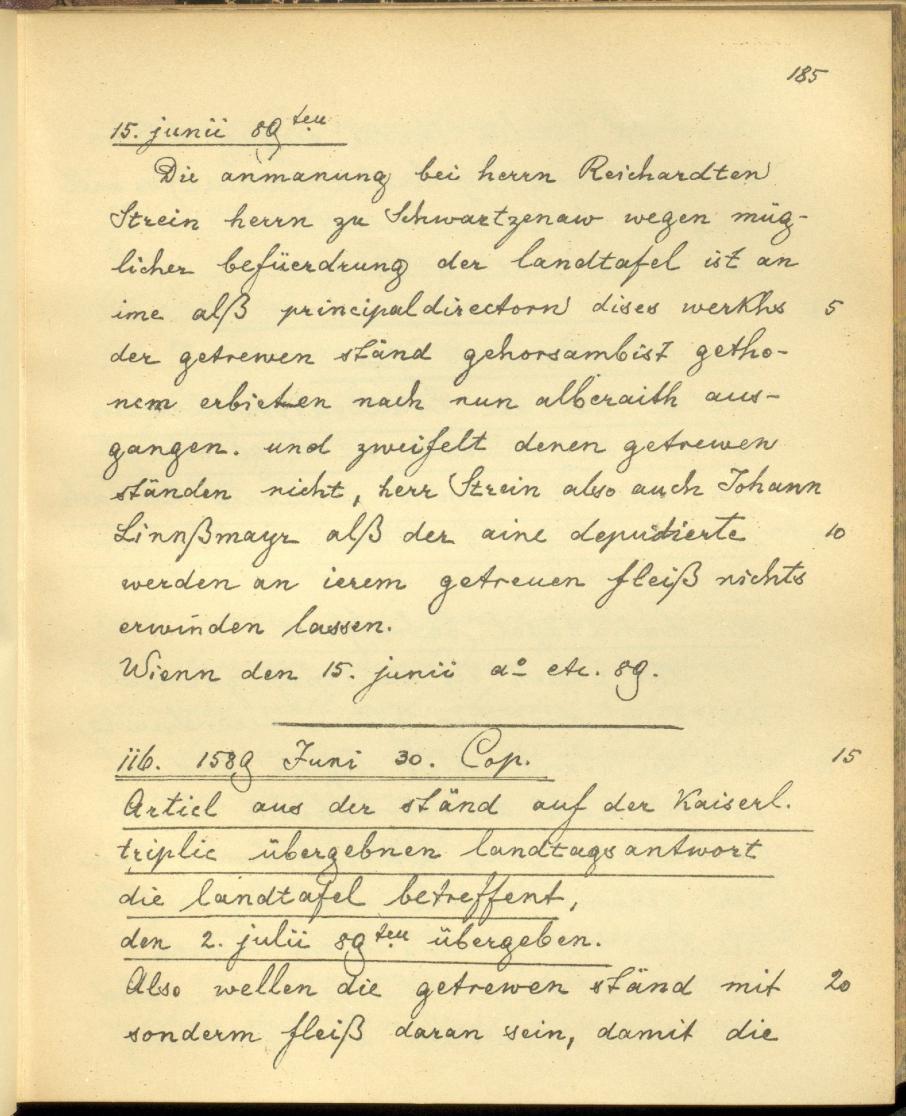 185
15. junii 89ten
Die anmanung bei herrn Reichardten
Strein herrn zu Schwartzenaw wegen müg-
licher befüerdrung der landtafel ist an
ime alß principaldirectorn dises werkhs 5
der getrewen ständ gehorsambist getho-
nem erbieten nach nun alberaith aus-
gangen. und zweifelt denen getrewen
ständen nicht, herr Strein also auch Johann
Linnßmayr alß der aine deputierte 10
werden an ierem getreuen fleiß nichts
erwinden lassen.
Wienn den 15. junii ao etc. 89.
iib. 1589 Juni 30. Cop. 15
Articl aus der ständ auf der Kaiserl.
triplic übergebnen landtagsantwort
die landtafel betreffent,
den 2. julii 89ten übergeben.
Also wellen die getrewen ständ mit 20
sonderm fleiß daran sein, damit die